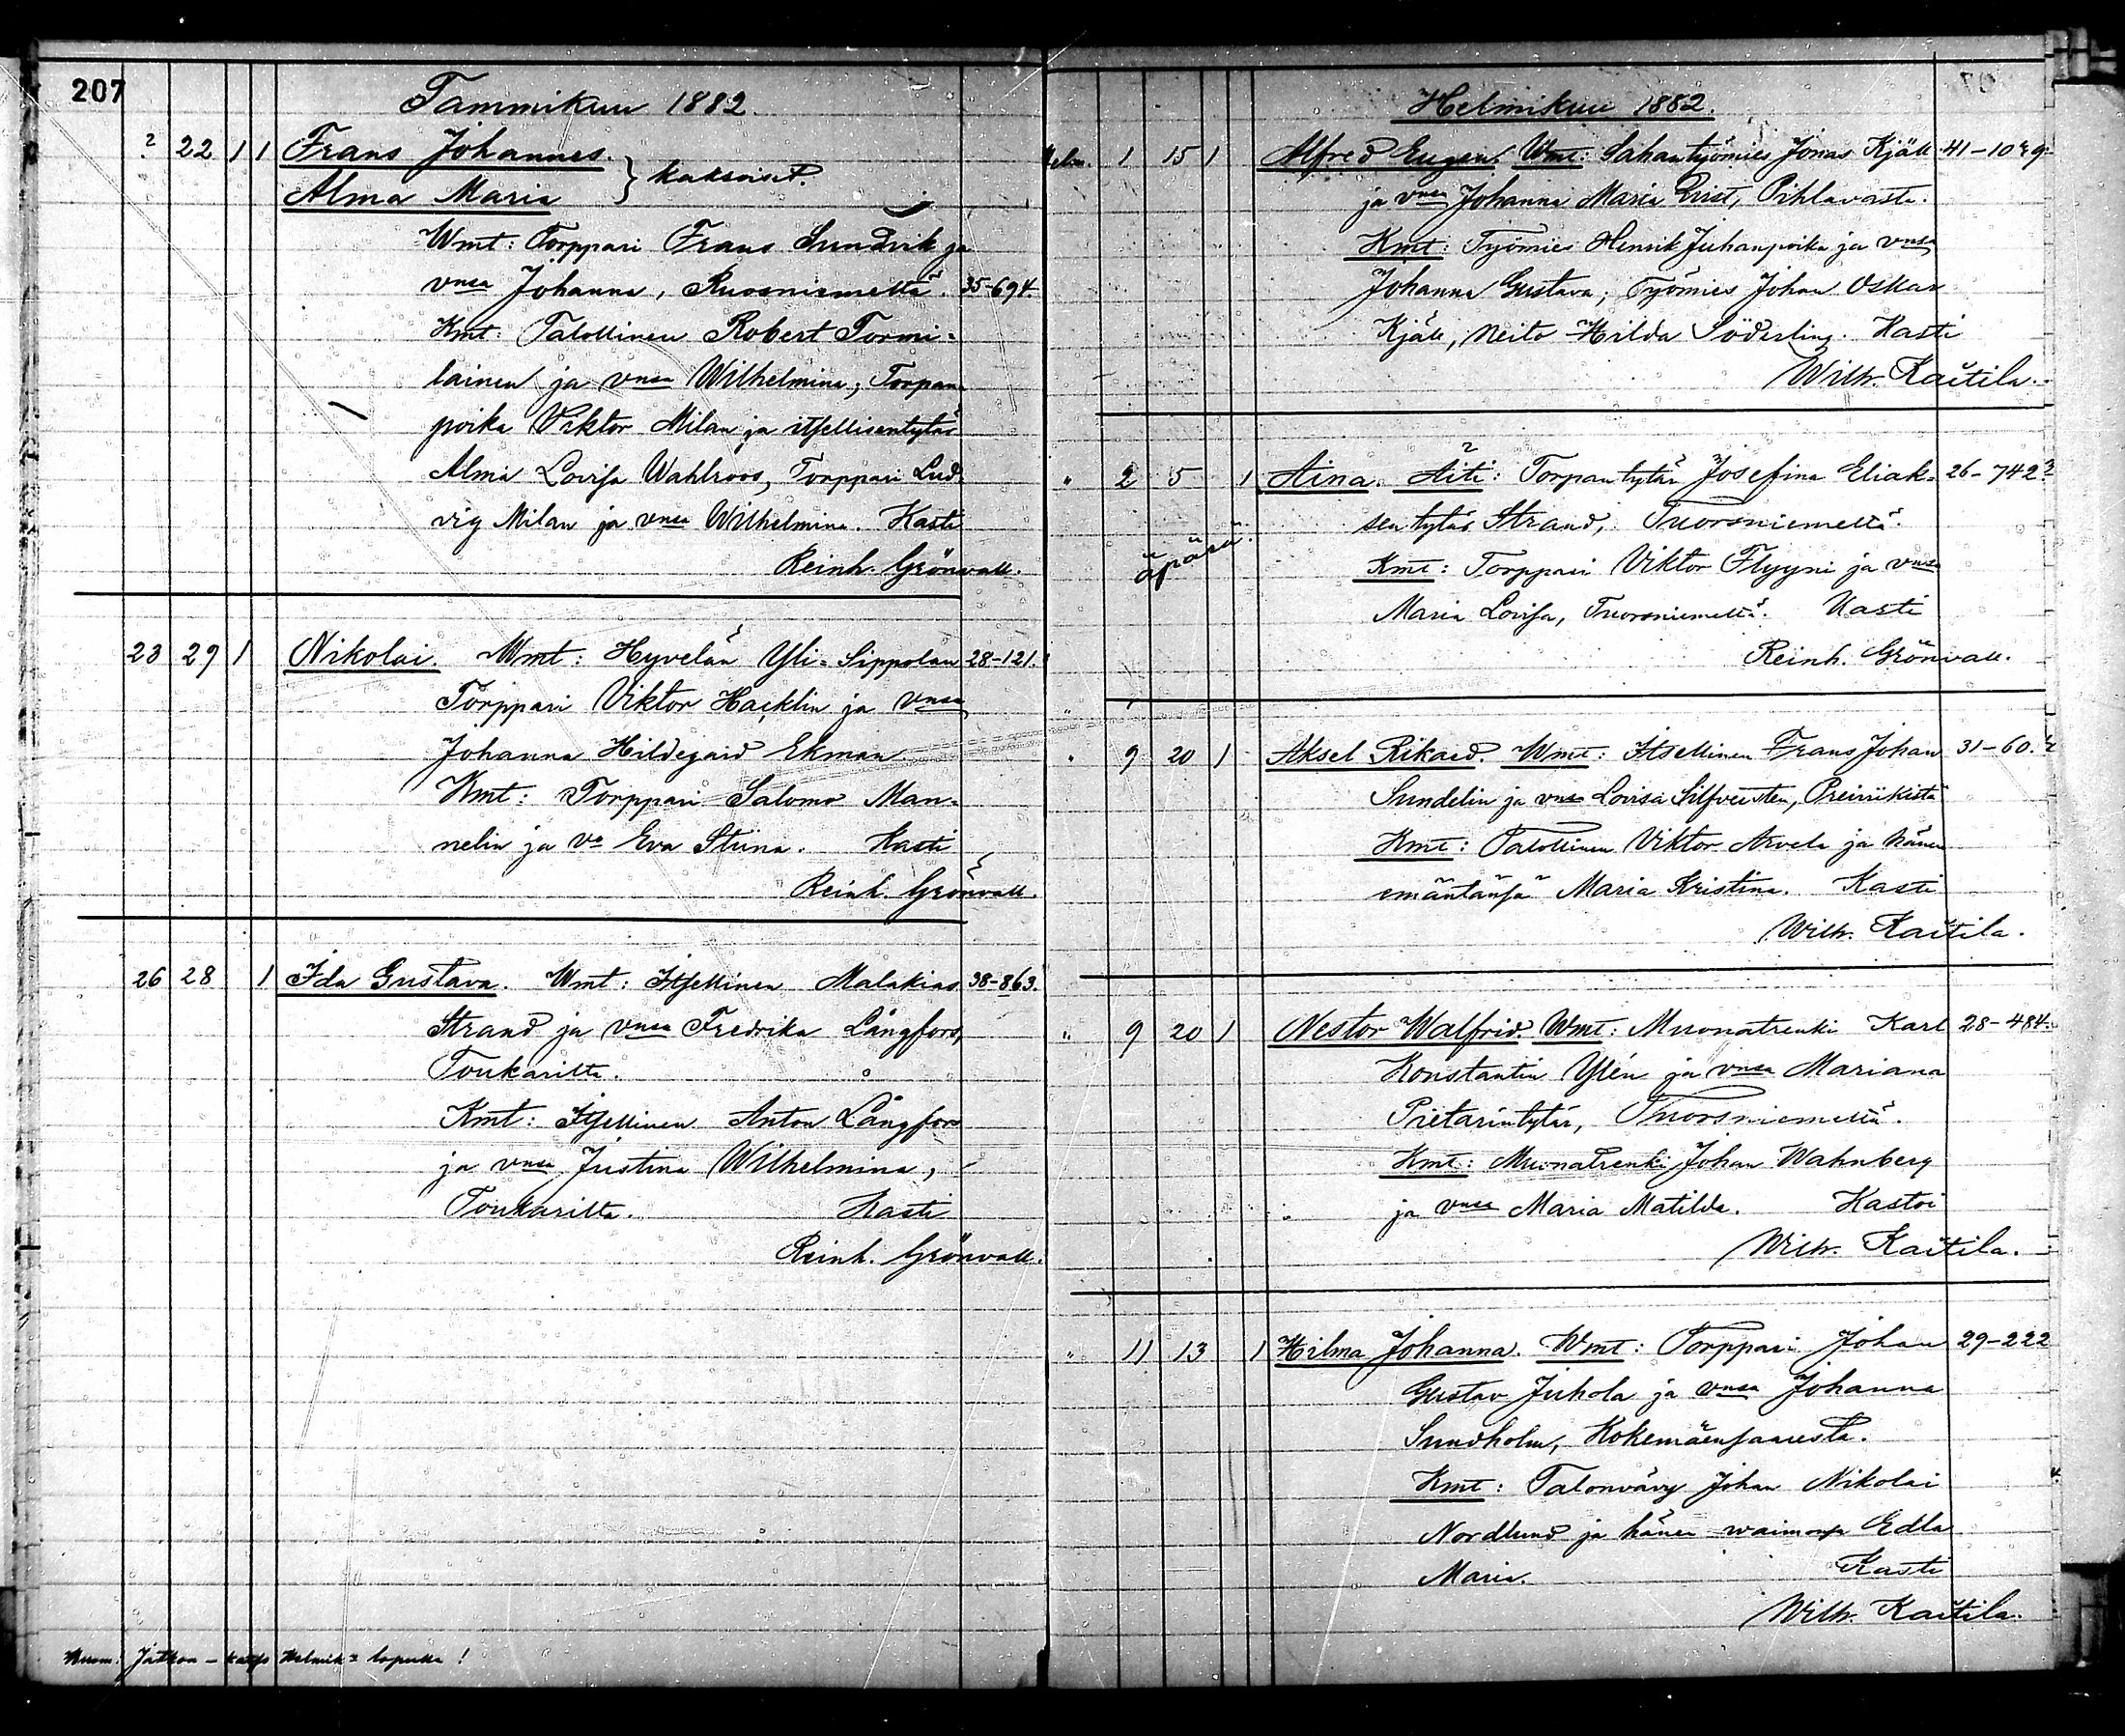 207
Tammikuu 1882.
? 22 1 1 Frans Johannes.
Alma Maria } kaksoiset.
Wmt: Torppari Frans Sundvik ja
vnsa Johanna, Ruosniemeltä. 35-694.
Kmt: Talollinen Robert Tormi=
lainen ja vnsa Wilhelmina, Torpan
poika Viktor Milan ja itsellisentytär
Alma Lovisa Wahlroos, Torppari Lud=
vig Milan ja vnsa Wilhelmina. Kasti
Reinh. Grönvall.
23 29 1 Nikolai. Wmt: Hyvelän Yli=Sippolan 28-121.
Torppari Viktor Hacklin ja vnsa
Johanna Hildegard Ekman.
Kmt: Torppari Salomo Man=
nelin ja vo Eva Stiina. Kasti
Reinh. Grönvall.
26 28 1 Ida Gustava. Wmt: Itsellinen Malakias 38-863.
Strand ja vnsa Fredrika Långfors,
Toukarilta.
Kmt: Itsellinen Anton Långfors
ja vnsa Justina Wilhelmina,
Toukarilta. Kasti
Reinh. Grönvall.
Muom: Jatkoa - katso Helmik= lopulla!
Helmikuu 1882.
Helm. 1 15 1 Alfred Eugen. Wmt: Sahantyömies Jonas Kjäll 41-1049
ja vnsa Johanna Maria Qvist, Pihlavasta.
Kmt: Työmies Henrik Juhanpoika ja vnsa
Johanna Gustava; Työmies Johan Oskar
Kjäll, Neito Hilda Söderling. Kasti
Wilh. Kaitila.
" 2 5 1 Aina. Äiti: Torpantytär Josefina Eliak= 26-742
sentytär Strand, Tuorsniemeltä.
äpärä.
Kmt: Torppari Viktor Flyyni ja vnsa
Maria Lovisa, Tuorsniemeltä. Kasti
Reinh. Grönvall.
" 9 20 1 Aksel Rikard. Wmt: Itsellinen Frans Johan 31-60.
Sundelin ja vnsa Lovisa Silfversten, Preiviikistä
Kmt: Talollinen Viktor Arvela ja hänen
emäntänsä Maria Kristina. Kasti
Wilh. Kaitila.
" 9 20 1 Nestor Walfrid. Wmt: Muonatrenki Karl 28-484.
Konstantin Ylén ja vnsa Mariana
Pietarintytär, Tuorsniemeltä.
Kmt: Muonatrenki Johan Wahnberg
ja vnsa Maria Matilda. Kastoi
Wilh. Kaitila.
" 11 13 1 Hilma Johanna. Wmt: Torppari Johan 29-222
Gustav Juhola ja vnsa Johanna
Sundholm, Kokemäensaaresta.
Kmt: Talonvävy Johan Nikolai
Nordlund ja hänen waimonsa Edla
Maria. Kasti
Wilh. Kaitila.